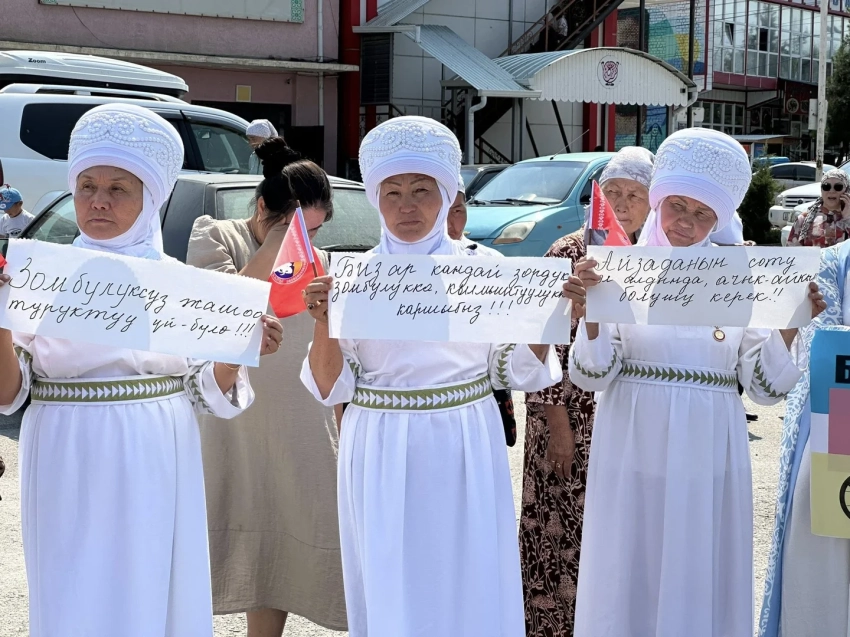 Zoom
Зомбулуксуз жашоо
туруктуу үй-бүлө !!!
Биз ар кандай зордук
зомбулукка,
каршыбыз !!!
Айзаданын соту
эл алдында, ачык-айкын
болушу керек !!